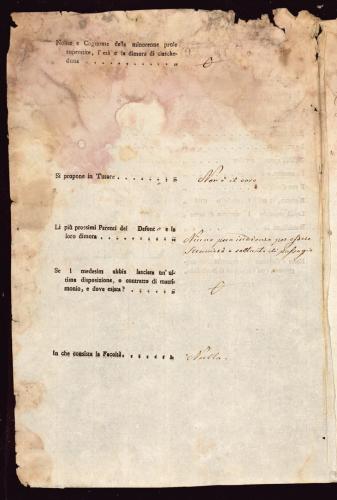 Nome e Cognome della minorenne prole
superstite, l'età e la dimora di ciasche-
duna . . . . . . . . . . .
Si propone in Tutore . . . . . . . Non è il caso
Li più prossimi Parenti del Defonto e la
loro dimora . . . . . . . . . . Niuno per
e soltanto di passaggio
Se i medesimi abbia lasciata un'ul-
tima disposizione, o contratto di matri-
monio, e dove esista? . . . . . .
In che consista la Facoltà. . . . . . . Nulla.